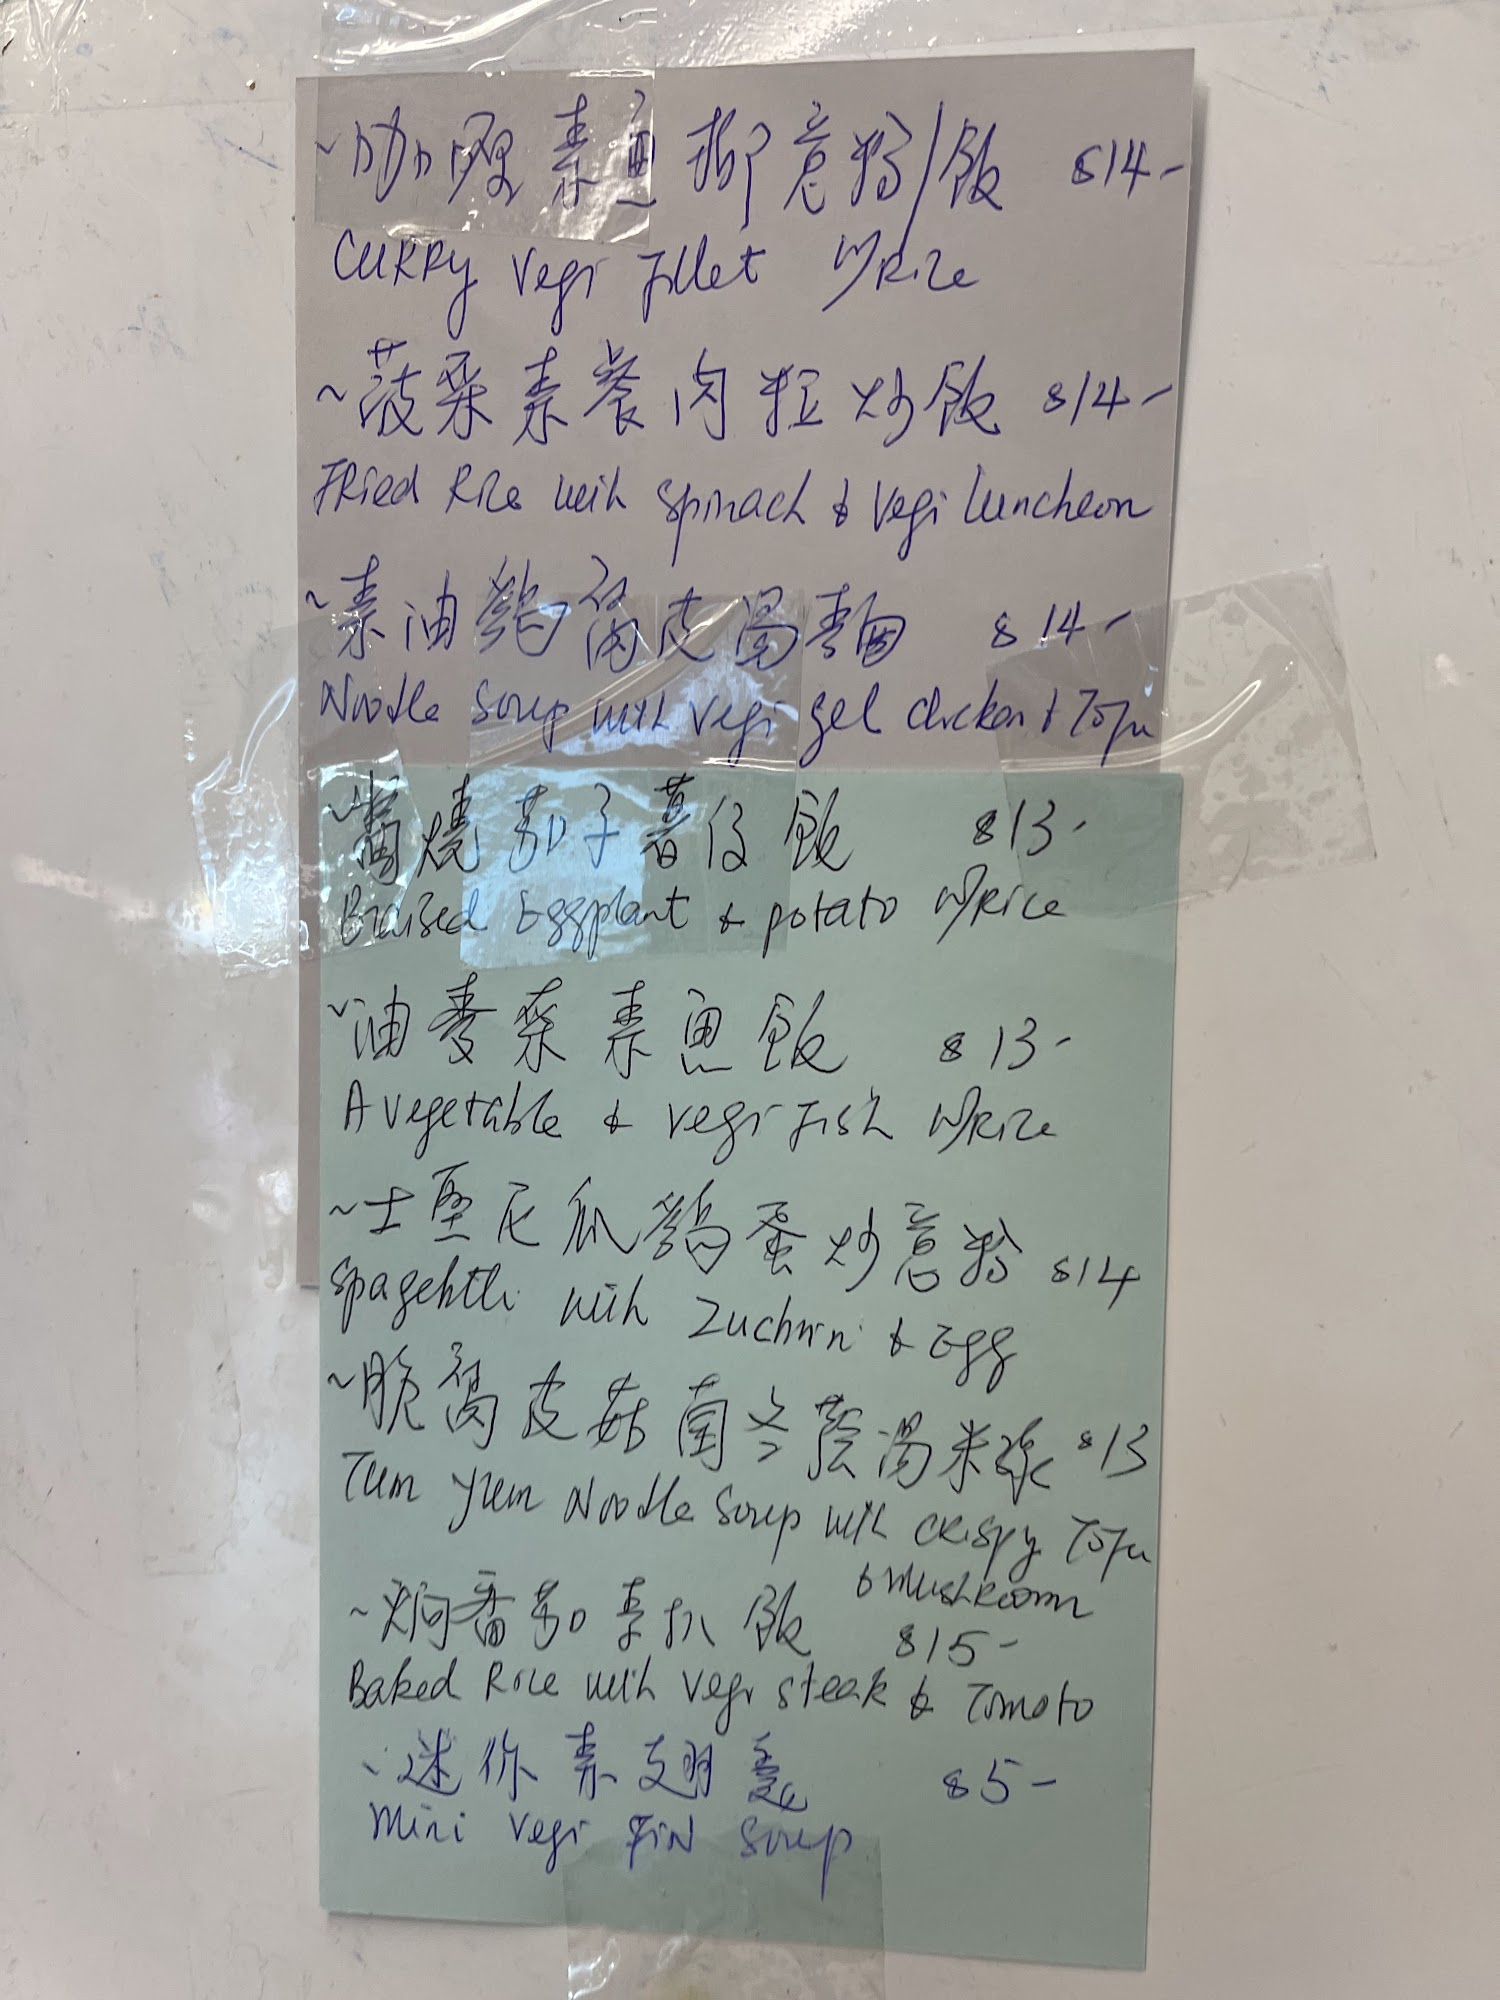 ~咖喱素魚柳意粉/飯 $14-
CURRy vegi Fillet W/Rice
~菠菜素餐肉粒炒飯 $14-
FRied Rice with spinach & vegi luncheon
~素油鷄腐皮湯麵 $14-
Noodle Soup with vegi gel chicken & Tofu
~醬燒茄子薯仔飯 $13-
Braised Eggplant & potato W/Rice
~油麥菜素魚飯 $13-
A vegetable & vegi Fish W/Rice
~士堅尼瓜鷄蛋炒意粉 $14
Spagehtti with Zuchini & Egg
~脆腐皮菇菌冬蔭湯米線 $13
Tum yum Noodle Soup with crispy Tofu
& mushroom
~焗番茄素扒飯 $15-
Baked Rice with vegi steak & Tomoto
~迷你素翅羹 $5-
mini vegi FiN Soup